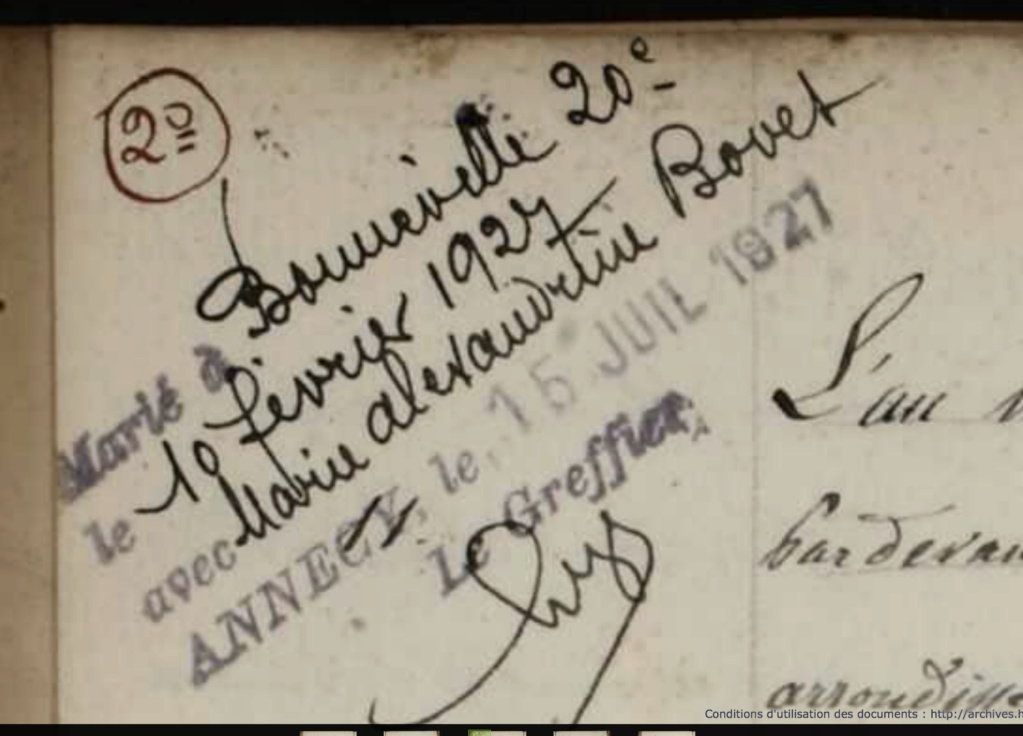 2º
Marié à Bonneville 20e
le 10 février 1927
avec Marie Alexandrine Bovet
ANNECY, le 15 JUIL 1927
Le Greffier,
L'an
par devan
arrondisse
Conditions d'utilisation des documents : http://archives.h